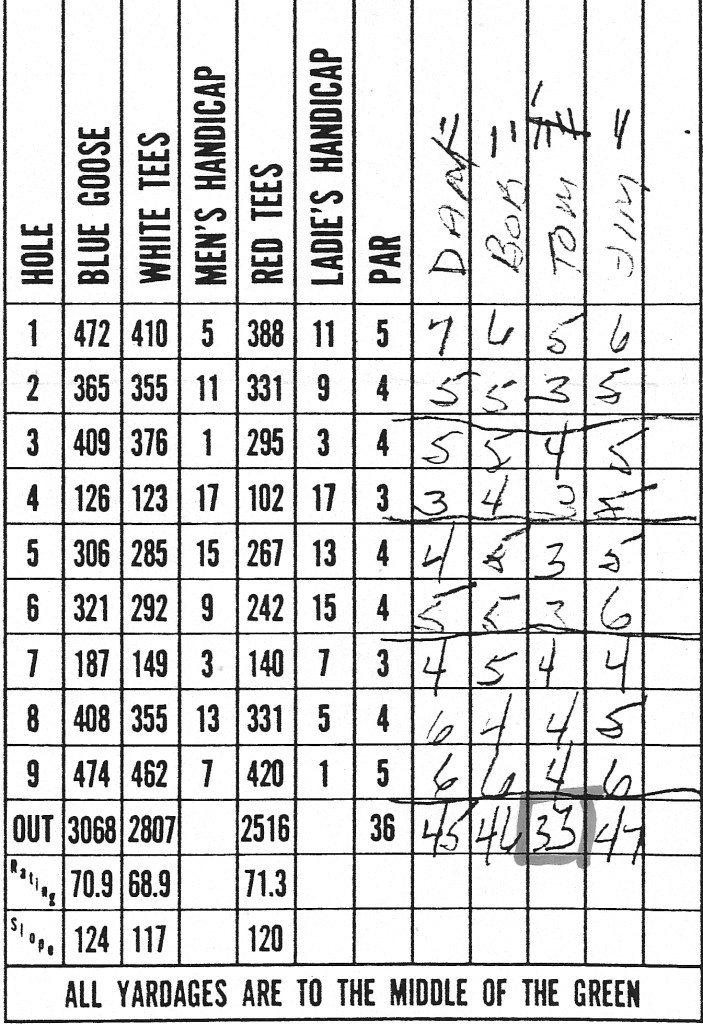 HOLE BLUE GOOSE WHITE TEES MEN'S HANDICAP RED TEES LADIE'S HANDICAP PAR DAN BOB TOM JIM
1 472 410 5 388 11 5 7 6 5 6
2 365 355 11 331 9 4 5 5 3 5
3 409 376 1 295 3 4 5 5 4 5
4 126 123 17 102 17 3 3 4 3 5
5 306 285 15 267 13 4 4 5 3 5
6 321 292 9 242 15 4 5 5 3 6
7 187 149 3 140 7 3 4 5 4 4
8 408 355 13 331 5 4 6 4 4 5
9 474 462 7 420 1 5 6 6 4 6
OUT 3068 2807 2516 36 45 46 33 47
Rating 70.9 68.9 71.3
Slope 124 117 120
ALL YARDAGES ARE TO THE MIDDLE OF THE GREEN